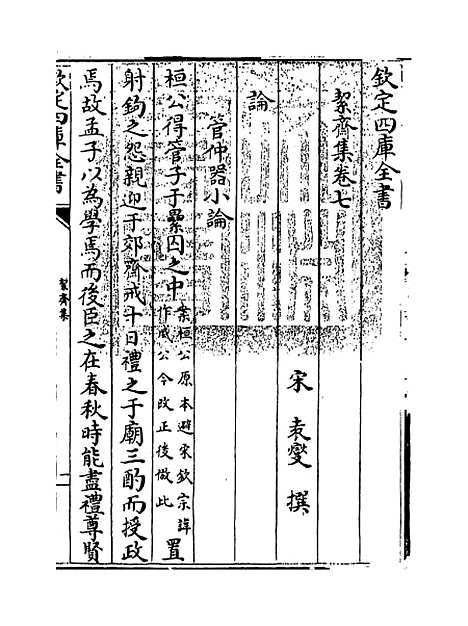 欽定四庫全書
絜齋集卷七
宋 袁燮 撰
論
管仲器小論
桓公得管子于纍囚之中
案桓公原本避宋欽宗諱
作威公今改正後倣此
置
射鉤之怨親迎于郊齋戒十日禮之于廟三酌而授政
焉故孟子以為學焉而後臣之在春秋時能盡禮尊賢
欽定四庫全書
絜齋集
一